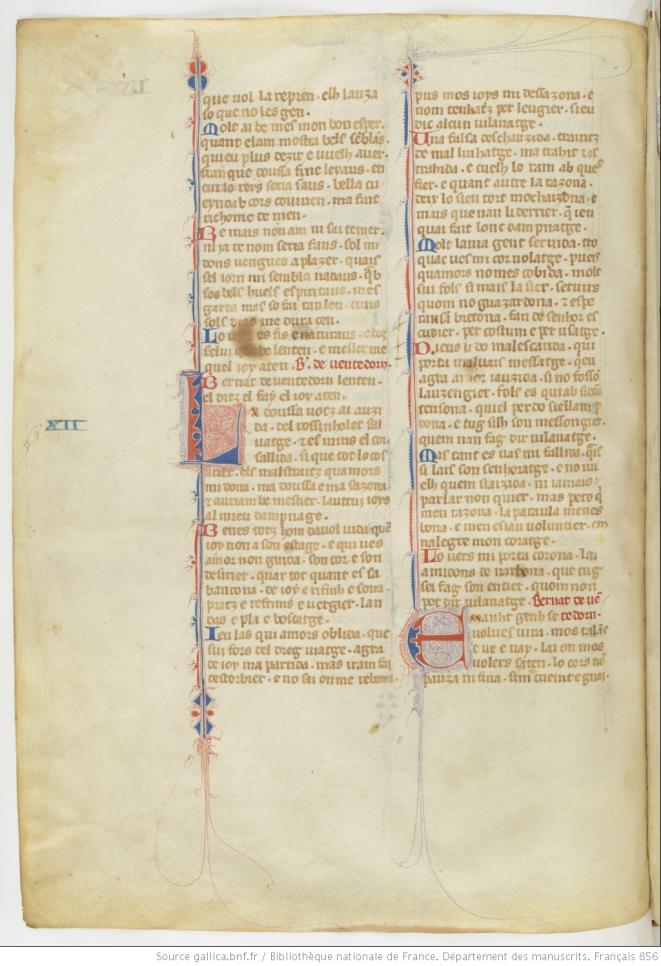 que uol la repren. elh lauza
so que no les gen.
Molt ai be mes mon bon esper.
quant elam mostra bels sēblās.
quieu plus dezir e uuelh auer.
franque doussa fine leyaus. en
cui lo reys seria saus. bella cu
eynda b cors couinen. ma fait
ric home de nien.
Re mais non am ni sai temer.
ni ia re nom seria fans. sol mi
dons uengues a plazer. quais
sel iorn mi sembla nadaus. qƀ
sos bels huels espiritaus. mes
garda mas so fai tan len. cuns
sols dias me dura cen.
Lo uers es fis e naturaus. e bos
selui be lenten. e meller me
quel ioy aten. B'. de uentedorn.
Bernat de uentedorn lenten.
el ditz el fay el ioy aten.
La doussa uotz ai auzi
da. del rossinholet sal
uatge. & es mins el cor
sallida. si que tot lo cos
sirier. els malstraitz quamors
mi dona. ma doussa e ma sazona.
& auriam be mestier. lautrui ioys
al mieu dampnage.
Benes totz hom dauol uida que
ioy non a son estage. e qui ues
amor non guida. son cor e son
desirier. quar tot quant es sa
bandona. de ioy e tifinh e sona
pratz e refrims e uergier. lan
das e pla e boscatge.
Ieu las qui amors oblida. que
sui fors del dreg uiatge. agra
de ioy ma partida. mas iram fai
destorbier. e no sai on me repona.
XII
pus mos ioys mi dessazona. e
nom tenhatz per leugier. sieu
dic alcun uilanatge.
Una falsa deschauzida. trairitz
de mal linhatge. ma trahit & es
trahida. e cuelh lo ram ab ques
fier. e quant autre la razona.
deir lo sieu tort mochaizona. e
mais quenan li derrier. q̄ ieu
quai fait lonc dampnatge.
Molt lauia gent seruida. tro
quac ues mi cor uolatge. pueis
quamors no mes cobida. molt
sui fols si mais la sier. seruirs
quom no guazardona. & espe
ransa bretona. fan de senhor es
cudier. per costum e per usatge.
Dieus li do mal escarida. qui
porta maluais messatge. qeu
agra amor iauzida. si no fosso
lauzengier. fols es qui ab sidōs
tensona. quel perdo siellam p
dona. e tug silh son messongier.
quem nan fag dir uilanatge.
Mas tant es uas mi fallida. q̄is
si lais son senhoratge. e no uu
elh quem siaizida. ni iamais
parlar non quier. mas pero q̄
men razona. la paraula menes
bona. e men esiau voluntier. em
nalegre mon coratge.
Lo uers mi porta corona. lai
a midons de narbona. que tug
sei fag son entier. quom non
pot dir uilanatge. Bernat de uē
tedorn.
Tot manht genh se
uolues iuna. mos talās
e ue e uay. lai on mos
uolers saten. lo cors nō
pauza ni fina. sim cueint e guai.